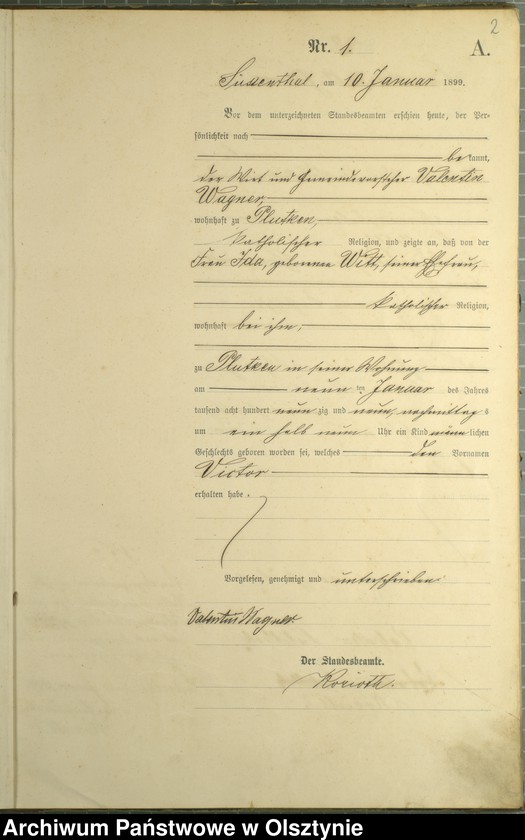 2
Nr. 1.
A.
Süssenthal, am 10. Januar 1899.
Vor dem unterzeichneten Standesbeamten erschien heute, der Per-
sönlichkeit nach
bekannt,
der Wirt und Gemeindevorsteher Valentin
Wagner,
wohnhaft zu Plutken,
katholischer Religion, und zeigte an, daß von der
Frau Ida, geborenen Witt, seiner Ehefrau,
katholischer Religion,
wohnhaft bei ihm,
zu Plutken in seiner Wohnung
am neunten Januar des Jahres
tausend acht hundert neunzig und neun, nachmittags
um ein halb neun Uhr ein Kind männlichen
Geschlechts geboren worden sei, welches den Vornamen
Victor
erhalten habe.
Vorgelesen, genehmigt und unterschrieben
Valentin Wagner.
Der Standesbeamte.
Korioth.
Archiwum Państwowe w Olsztynie